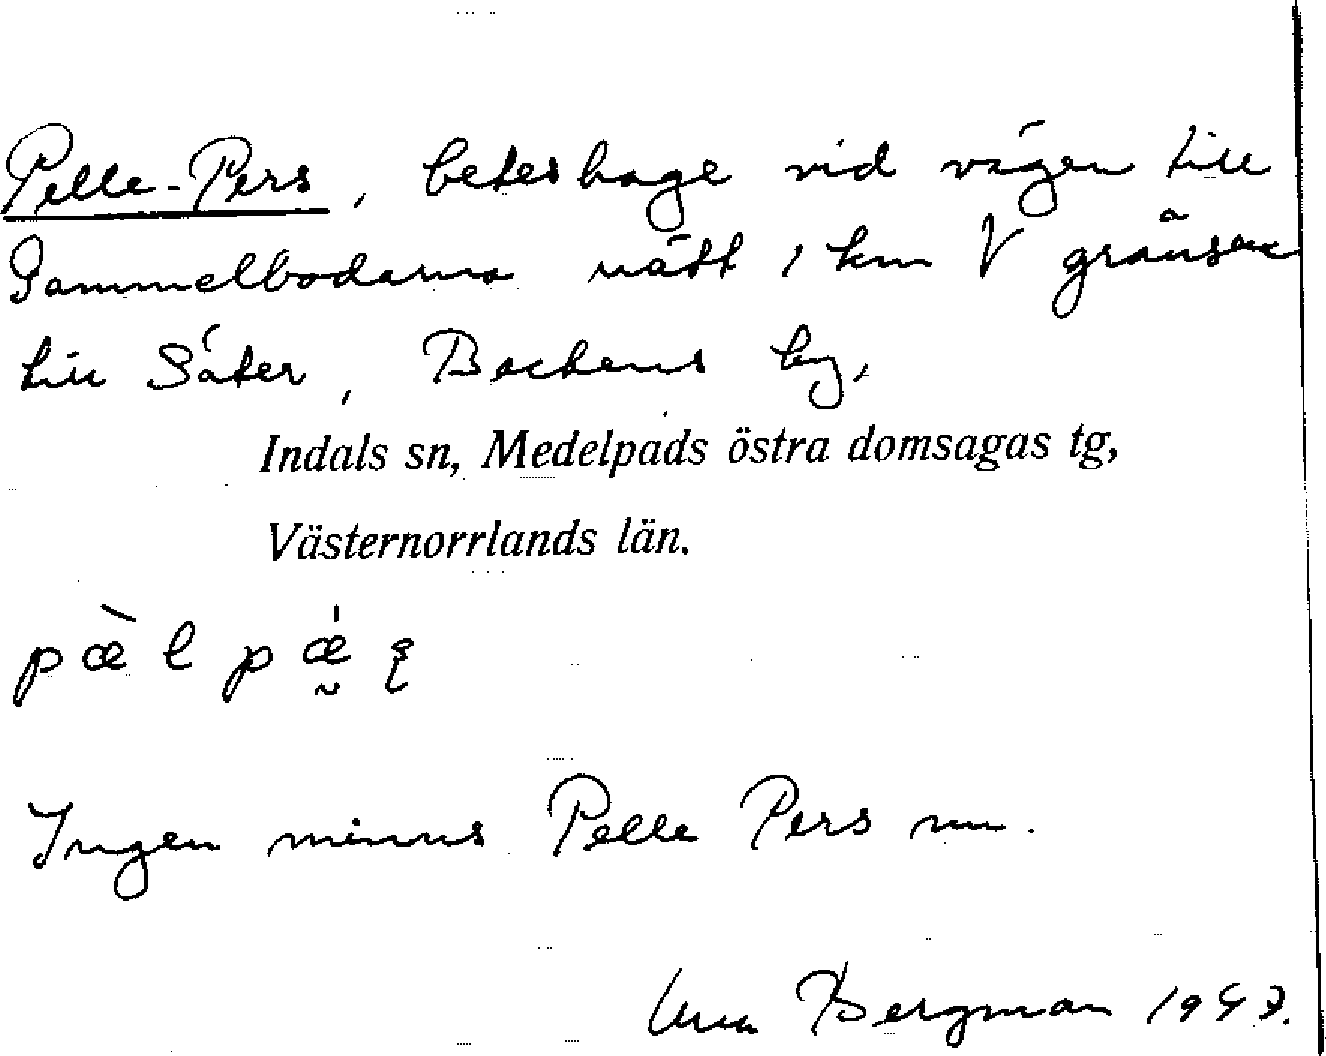 Pelle-Pers, beteshage vid vägen till
Gammelbodarna nätt 1 km V gränsen
till Säter, Backens by,
Indals sn, Medelpads östra domsagas tg,
Västernorrlands län.
Ingen minns Pelle Pers nu.
Bergman